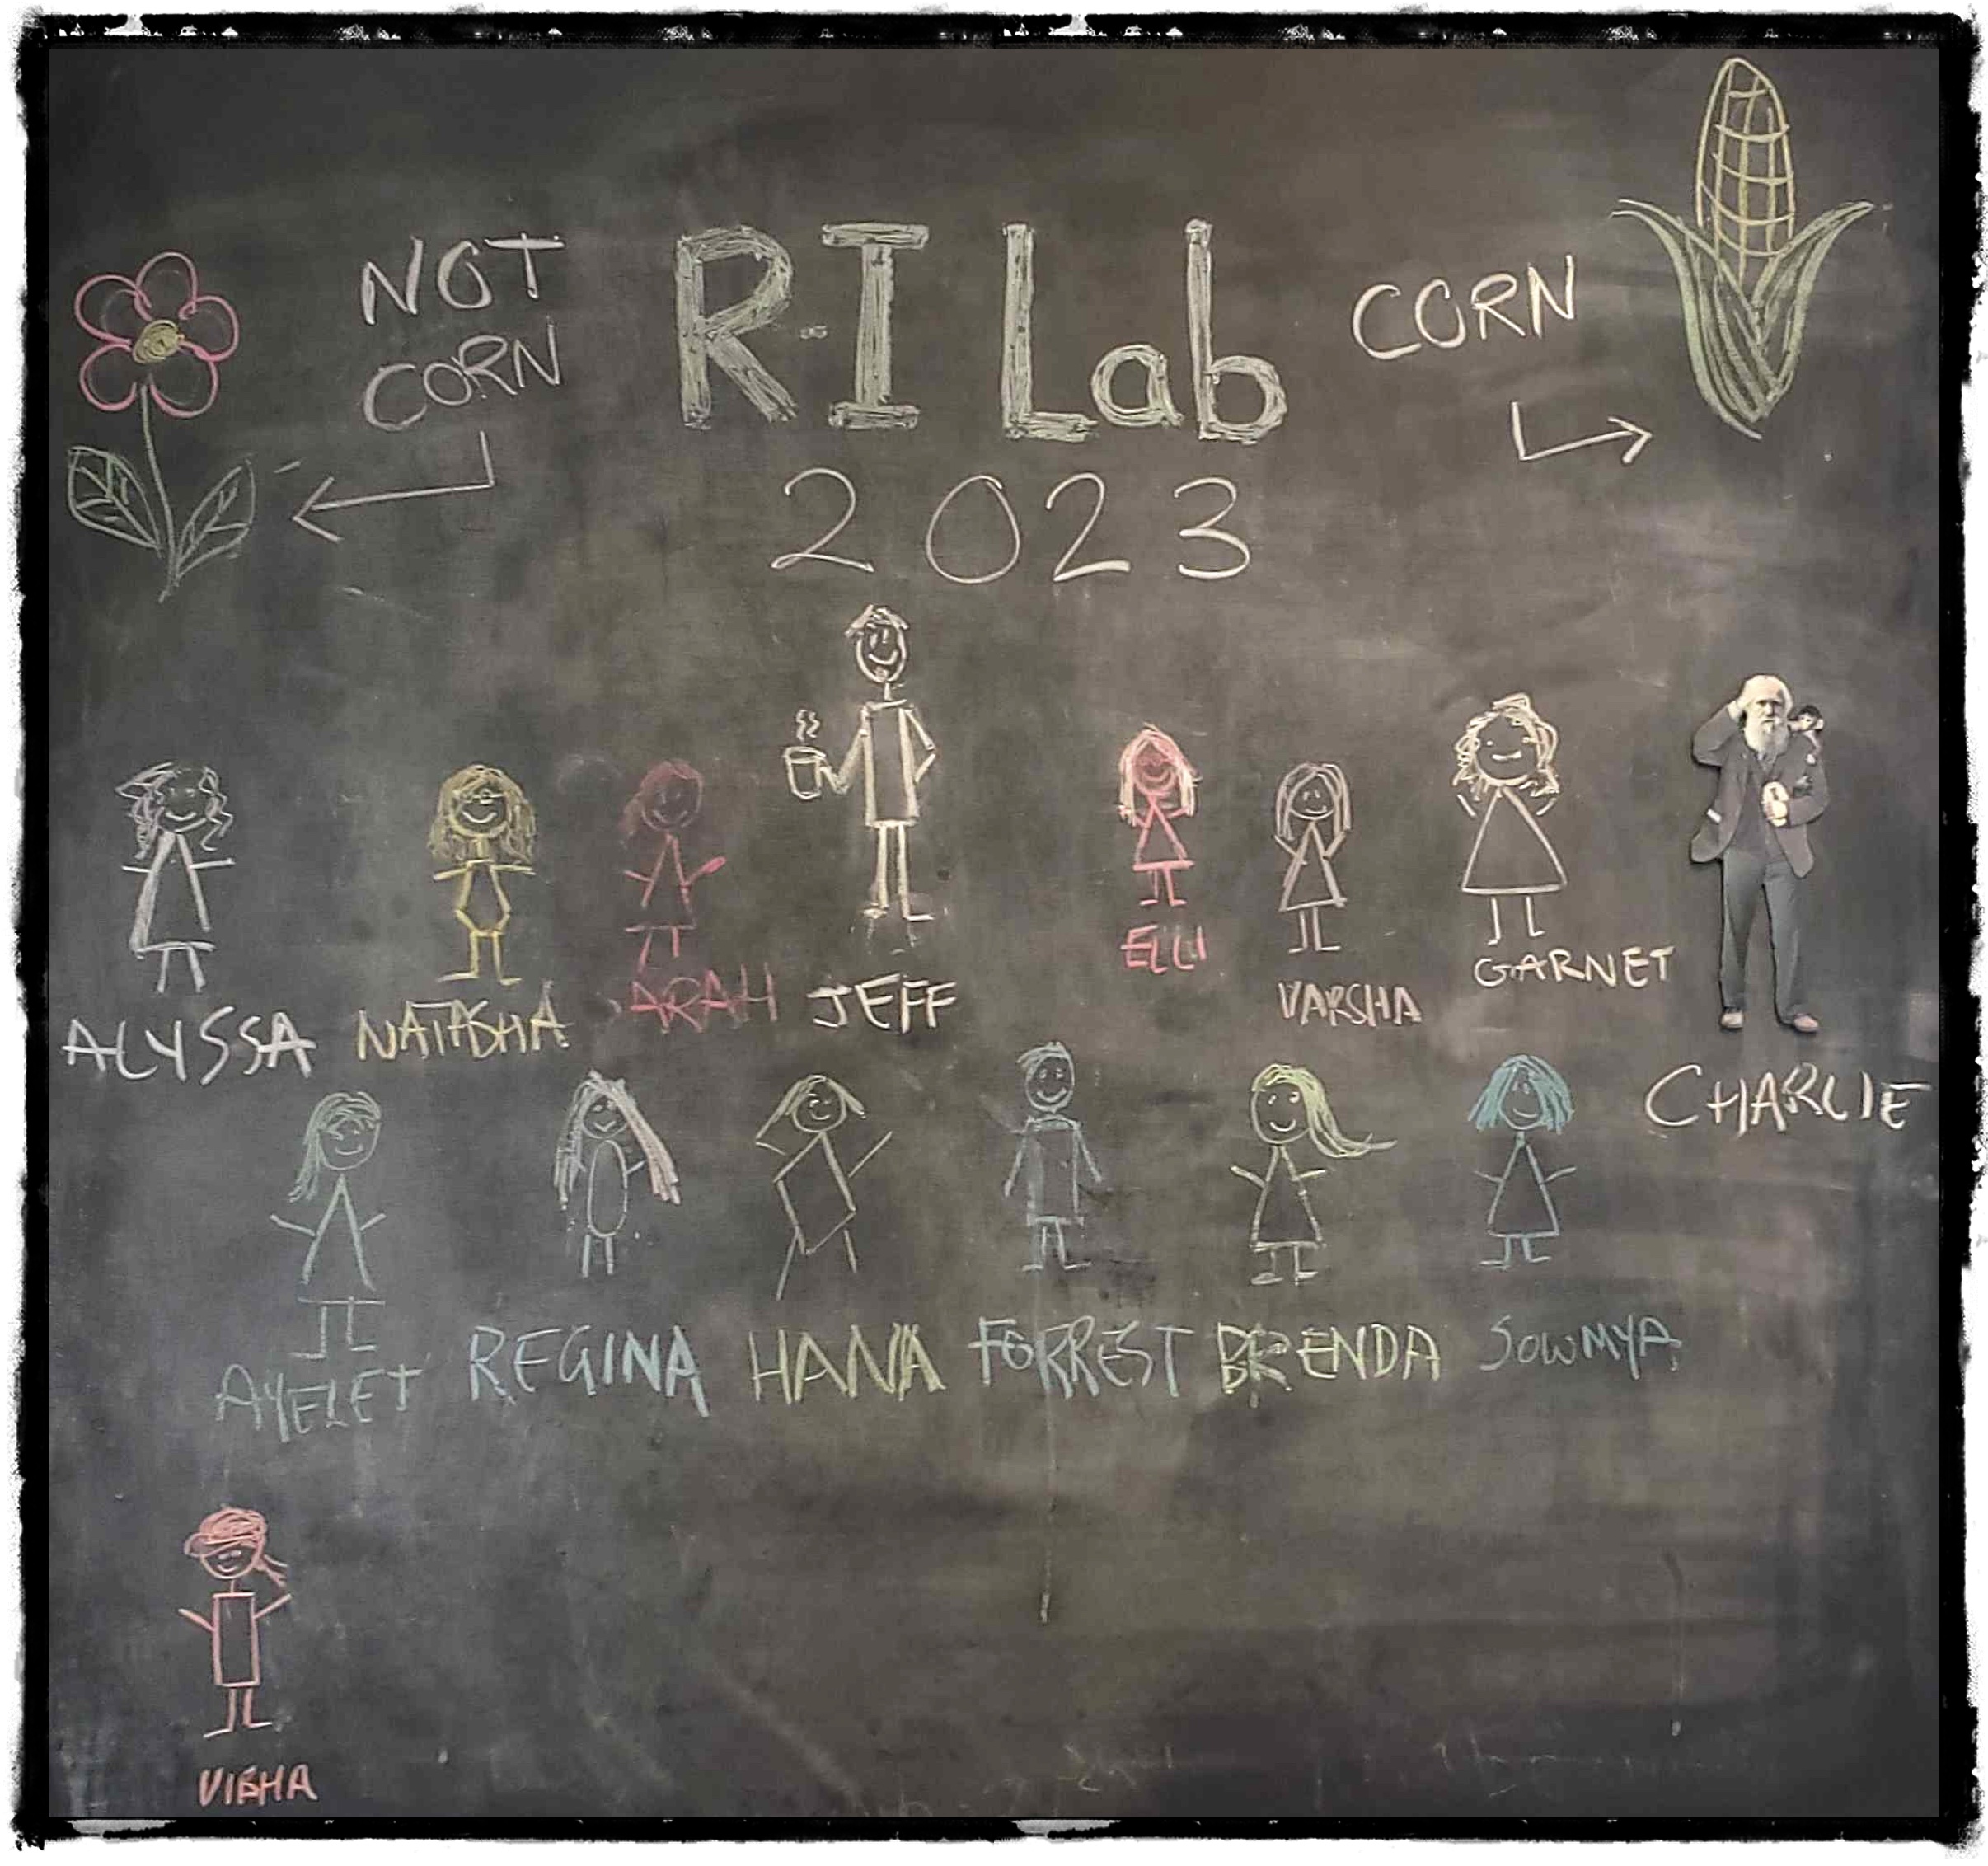 NOT
CORN
RI Lab
2023
CORN
ALYSSA
NATASHA
ARAH
JEFF
ELLI
VARSHA
GARNET
CHARLIE
AYELET
REGINA
HANA
FORREST
BRENDA
SOWMYA
VIBHA